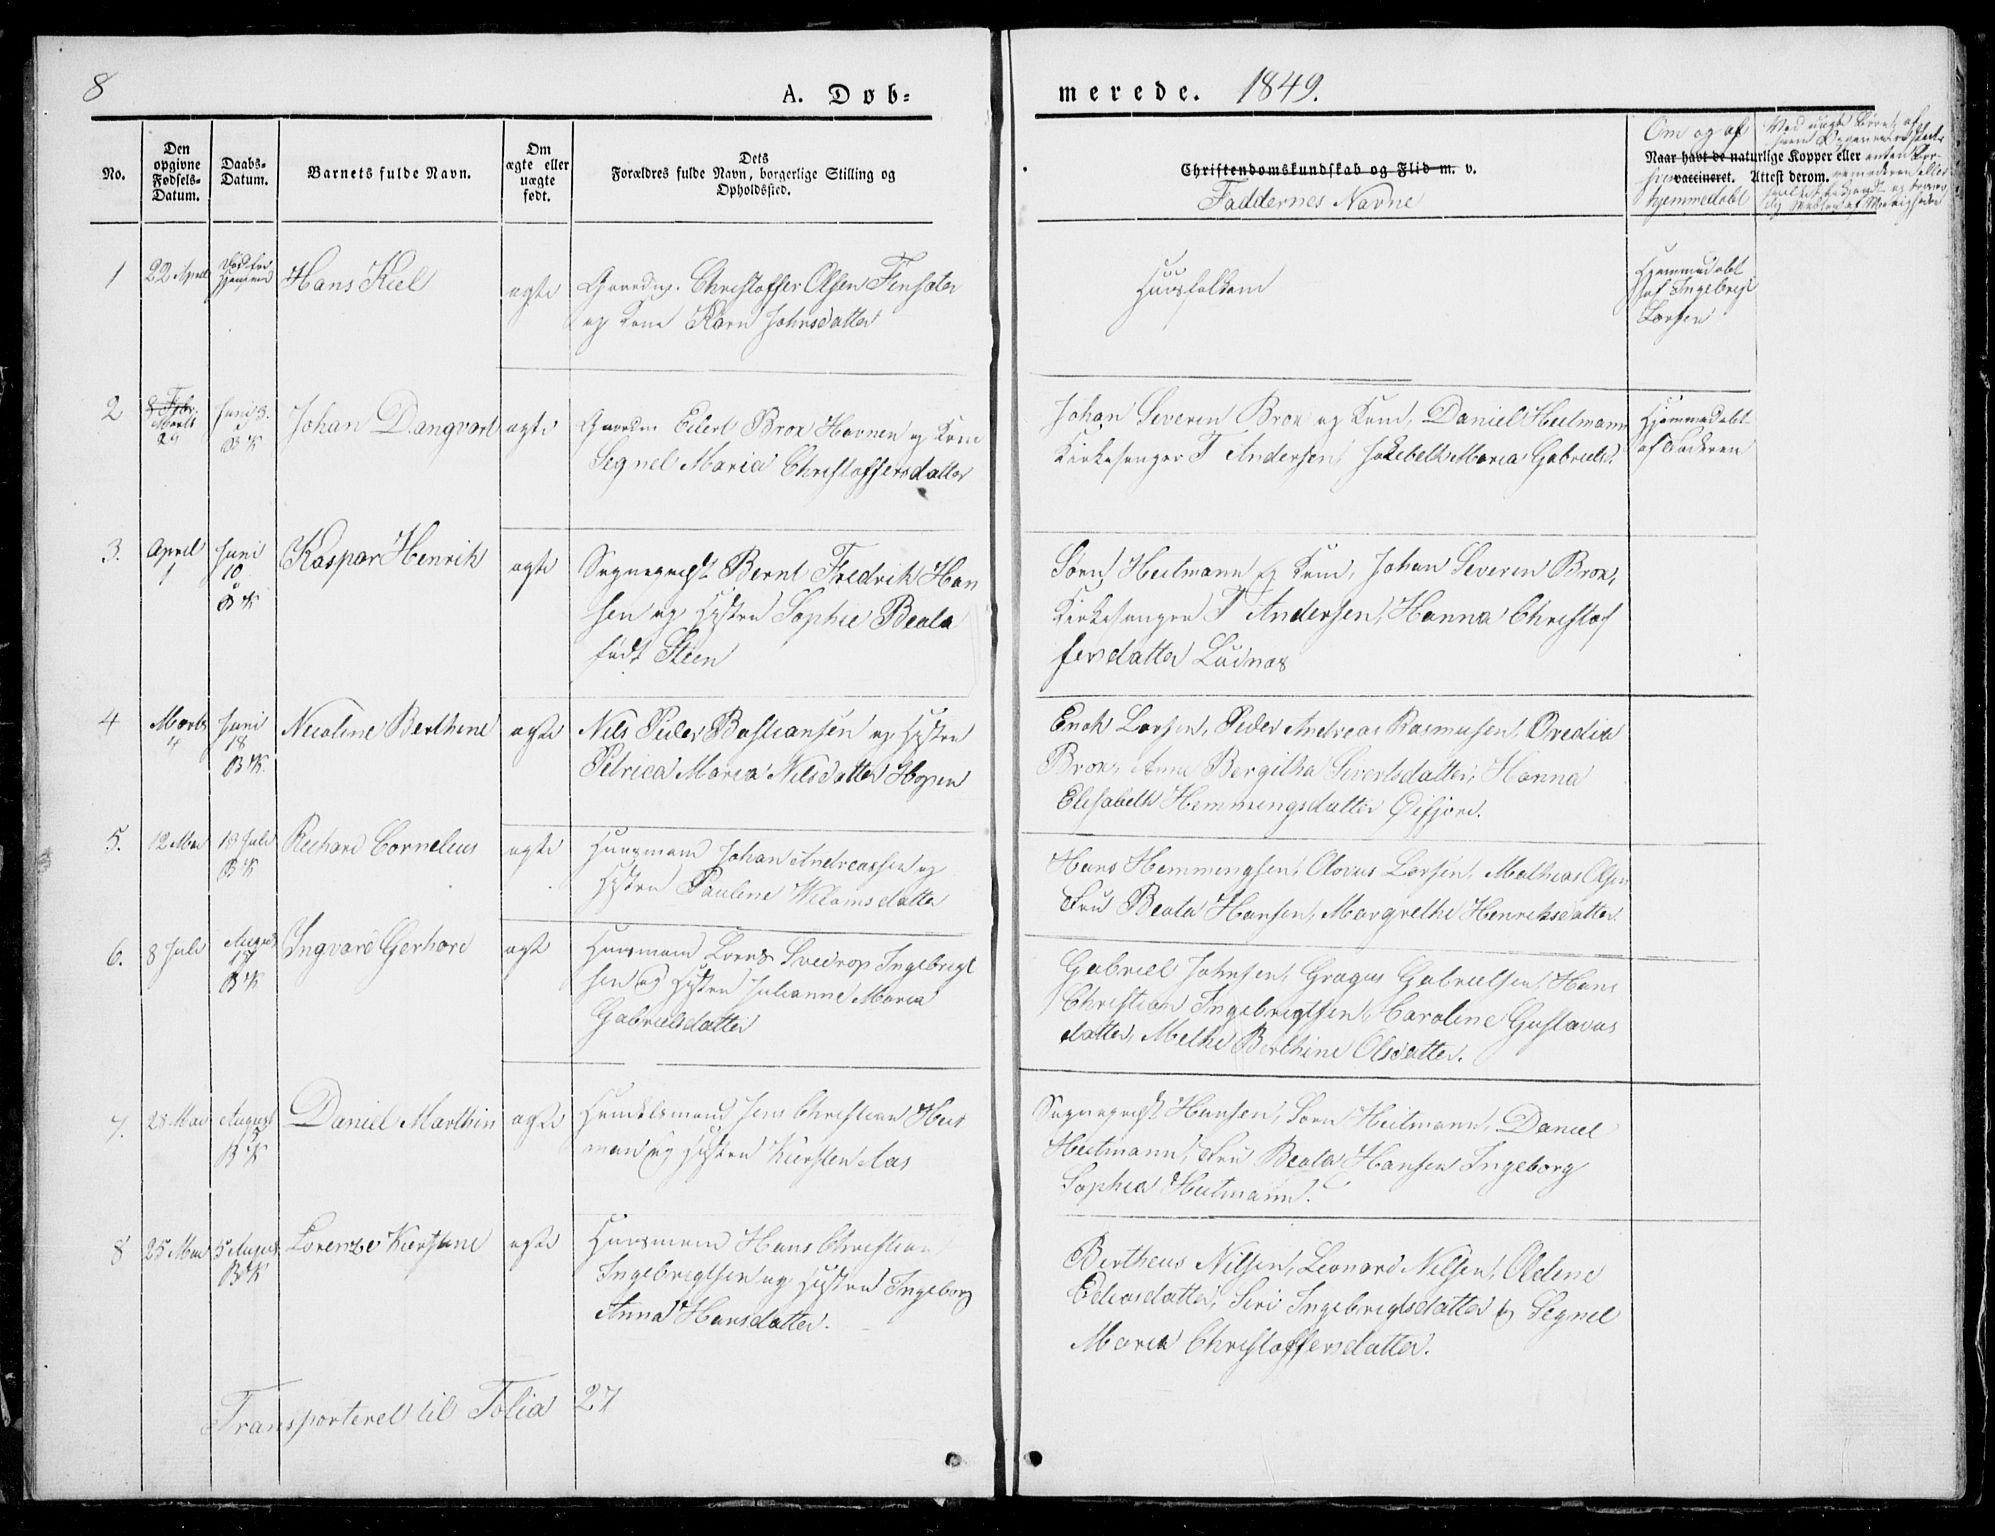 8
A. Døb-
merede. 1849.
No.
Den
opgivne
Fødsels-
Datum.
Daabs-
Datum.
Barnets fulde Navn.
Om
ægte eller
uægte
født.
Dets
Forældres fulde Navn, borgerlige Stilling og
Opholdssted.
Christendomskundskab og Flid m. v.
Faddernes Navne
Om og af
Naar havt de naturlige Kopper eller
hvem
vaccineret. Attest derom.
hjemmedøbt
1
22 April
Hans Kiel
ægte
Gaardm. Christoffer Olsen Finsæter
og Kone Karn Johnsdatter
Huusfolkene
Hjemmedøbt
af Ingebrigt
Larsen
2
8 Febr.
Marts
24
Juni 3.
i
B K
Johan Dangvart
ægte
Gaardm. Eilert Brox Havnen og Kone
Segnel Maria Christoffersdatter
Johan Severin Brox og Kone, Daniel Heitmann
Kirkesanger T Andersen, Maria Gabrielsd.
Hjemmedøbt
af Faderen
3.
April
1
Juni
10
i
B K
Kaspar Henrik
ægte
Sognepræst Bernt Fredrik Han
sen og Hustru Sophie Beata
født Steen
Sørn Heitmann og Kone, Johan Severin Brox,
Kirkesanger T Andersen, Hanna Christof
fersdatter Lüdnæs
4
Marts
4
Juni
18
B K.
Nicoline Berthine
ægte
Nils Peder Bastiansen og Hustru
Petrica Maria Nilsdatter Hopen
Enok Larsen, Peder Andreas Rasmussen, Ovedia
Brox, Anne Bergitha Sivertsdatter, Hanna
Elisabeth Hemmingsdatter Øifjord.
5.
12 Mai
18 Juli
B K
Richard Cornelius
ægte
Huusmand Johan Andreassen og
Hustru Pauline Wilumsdatter
Hans Hemmingsen, Olavus Larsen, Mathias Olsen
Fru Beata Hansen, Margrethe Henriksdatter.
6.
8 Juli
August
B K
Ingvard Gerhard
ægte
Huusmand Lorns Svedrop Ingebrigt
sen og Hustru Julianne Maria
Gabrielsdatter
Gabriel Johnsen, Gragus Gabrielsen, Hans
Christian Ingebrigtsen, Karoline Gustavus
datter, Methe Berthine Olsdatter.
7.
28 Mai
August
5
B K
Daniel Marthin
ægte
Handelsmand Jens Christian Heit
man og Hustru Kiersten Aas
Sognepræst Hansen, Sørn Heitmann, Daniel
Heitmann, Fru Beata Hansen Ingeborg
Sophia Heitmann.
8
25 Mai
5 August
B K
Lorentze Kierstine
ægte
Huusmand Hans Christian
Ingebrigtsen og Hustru Ingeborg
Anna Hansdatter.
Bertheus Nilsen, Leonard Nilsen, Oldine
Eliasdatter, Siri Ingebrigtsdatter og Segnel
Maria Christoffersdatter.
Transporteret til Folia 27